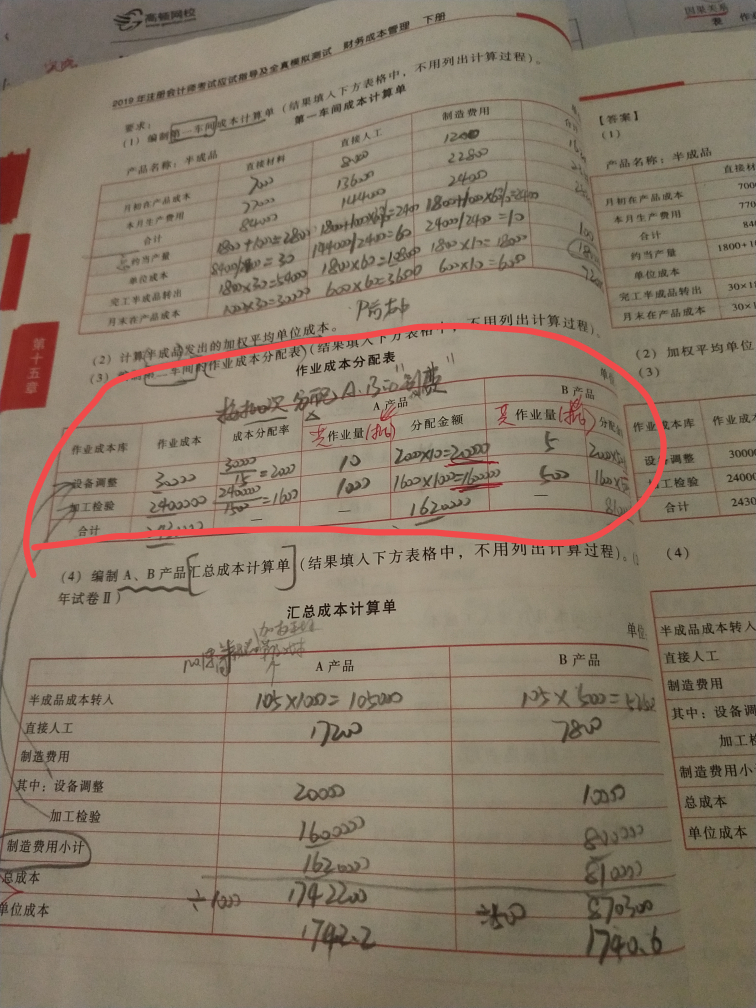 高顿网校
因果关系
表 作业
2019年注册会计师考试应试指导及全真模拟测试 财务成本管理 下册
要求：
(1) 编制第一车间成本计算单（结果填入下方表格中，不用列出计算过程）。
第一车间成本计算单
产品名称：半成品
直接材料 直接人工 制造费用 合计
月初在产品成本 7000 8000 1200
本月生产费用 77000 136000 22800
合计 84000 144000 24000
约当产量 1800+1000=2800 1800+1000×60%=2400 1800+1000×60%=2400
单位成本 84000/2800=30 144000/2400=60 24000/2400=10 100
完工半成品转出 1800×30=54000 1800×60=108000 1800×10=18000
月末在产品成本 1000×30=30000 600×60=36000 600×10=6000
(2) 计算半成品发出的加权平均单位成本。
(3) 编制第二车间的作业成本分配表（结果填入下方表格中，不用列出计算过程）。
作业成本分配表
单位
作业成本库 作业成本 成本分配率 A产品 B产品
作业量 分配金额 作业量 分配金
设备调整 30000 30000/15=2000 10 2000×10=20000 5
加工检验 2400000 2400000/1500=1600 1000 1600×1000=1600000 500
合计 — — 1620000 —
(4) 编制A、B产品汇总成本计算单（结果填入下方表格中，不用列出计算过程）。
年试卷Ⅱ）
汇总成本计算单
单位：
A产品 B产品
半成品成本转入 105×1000=105000 105×500=
直接人工 17200 7800
制造费用
其中：设备调整 20000 10000
加工检验 1600000 800000
制造费用小计 1620000 810000
总成本 1742200 870300
单位成本 ÷1000 1742.2 ÷500 1740.6
第十五章
【答案】
(1)
产品名称：半成品
直接材
月初在产品成本 700
本月生产费用 770
合计 840
约当产量 1800+10
单位成本
完工半成品转出 30×1
月末在产品成本 30×1
(2) 加权平均单位
(3)
作业成本库 作业成本
设备调整 30000
加工检验 24000
合计 2430
(4)
半成品成本转入
直接人工
制造费用
其中：设备调
加工检
制造费用小计
总成本
单位成本